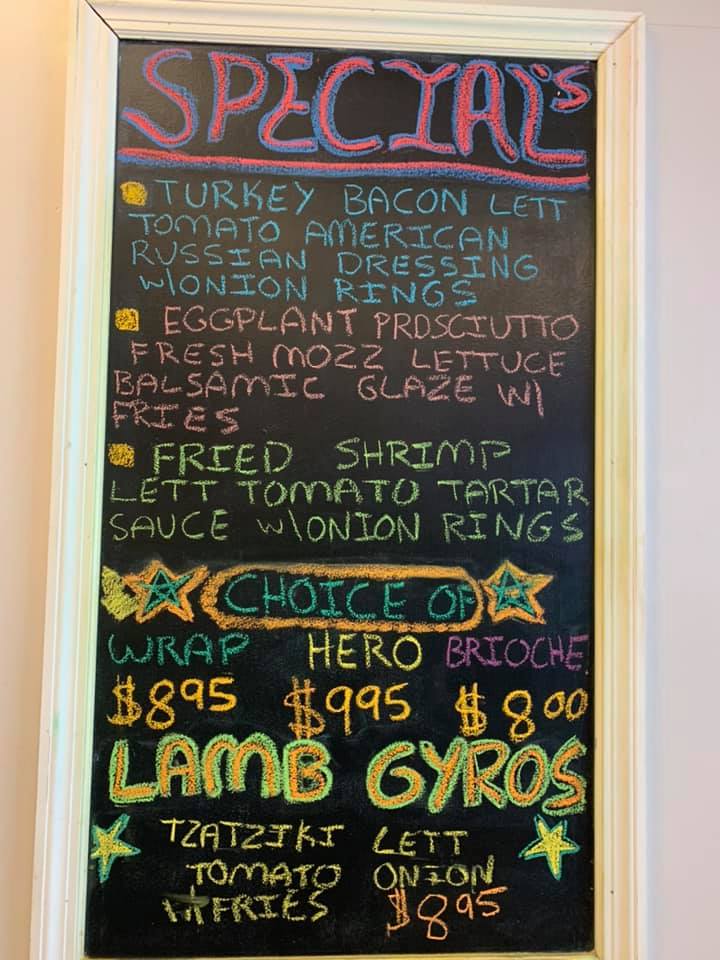 SPECIAL'S
TURKEY BACON LETT
TOMATO AMERICAN
RUSSIAN DRESSING
W\ONION RINGS
EGGPLANT PROSCIUTTO
FRESH MOZZ LETTUCE
BALSAMIC GLAZE W/
FRIES
FRIED SHRIMP
LETT TOMATO TARTAR
SAUCE W\ONION RINGS
CHOICE OF
WRAP HERO BRIOCHE
$895 $995 $800
LAMB GYROS
TZATZIKI LETT
TOMATO ONION
W/FRIES $895